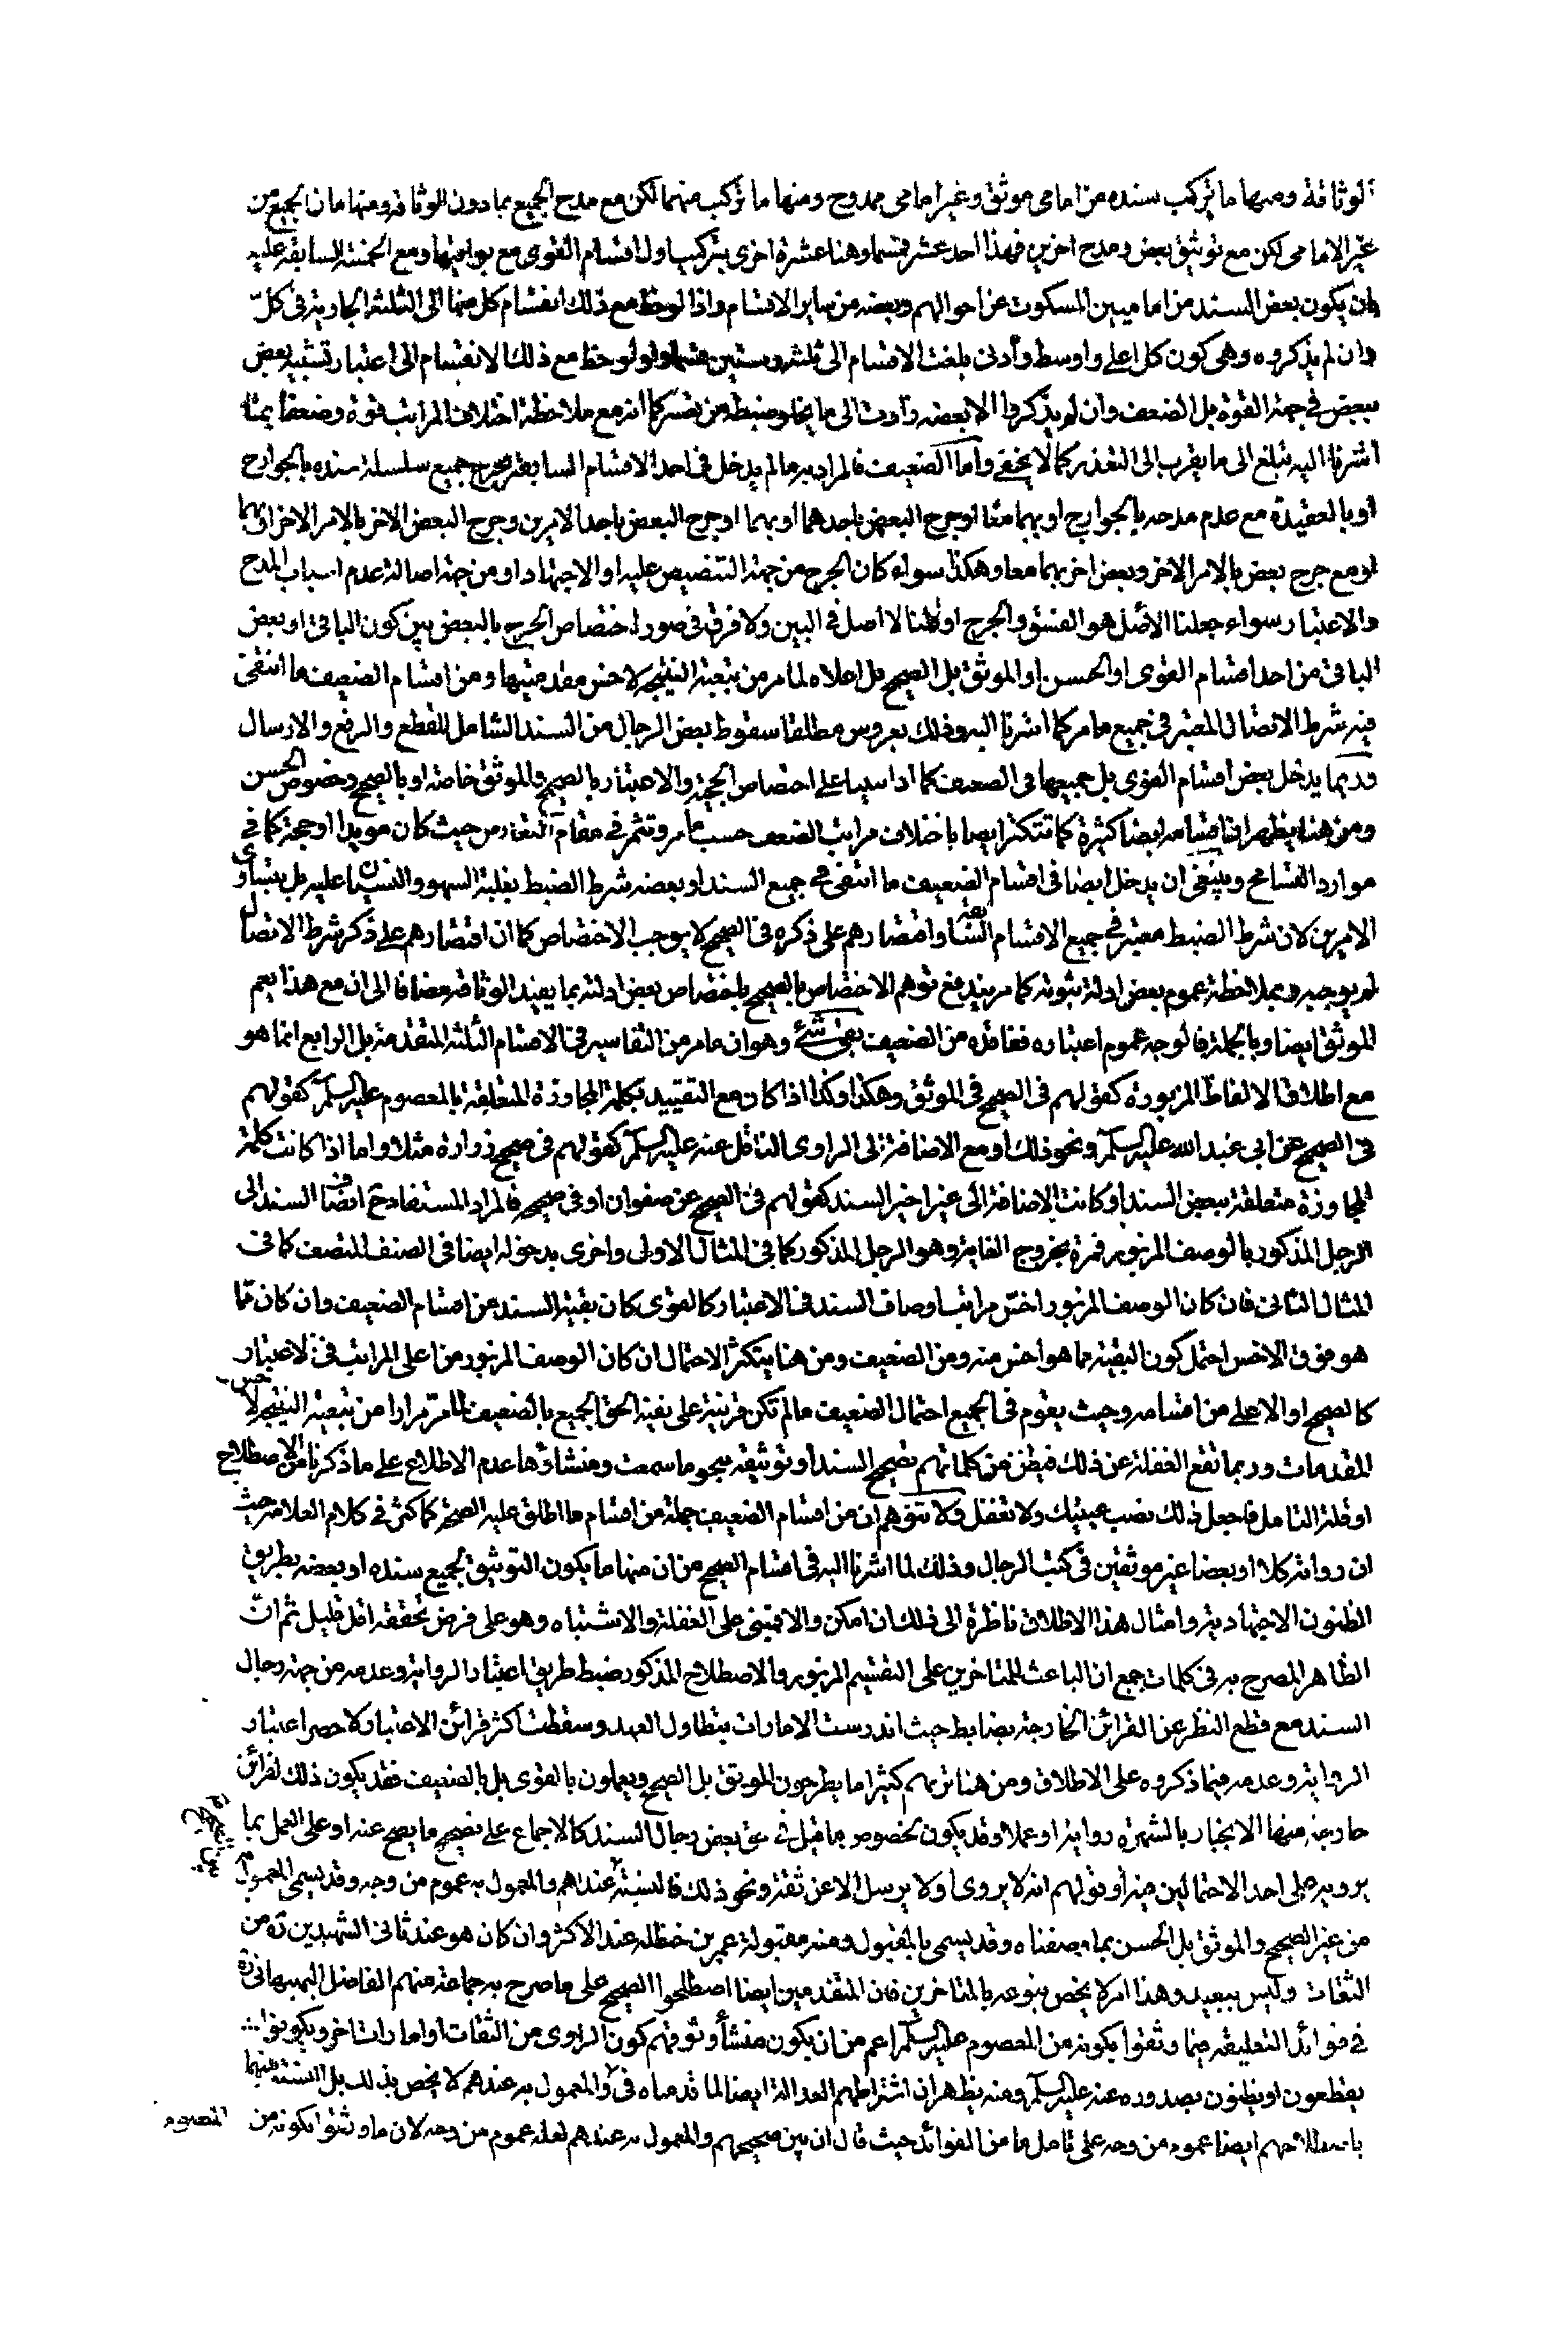 الوثاقة ومنها ما يتركب سنده من امامى موثق وغير امامى ممدوح ومنها ما تركب منهما لكن مع مدح الجميع بما دون الوثاقة ومنها ما كان الجميع من
غير الامامى لكن مع توثيق بعض ومدح اخرين فهذا احد عشر قسما وهنا عشرة اخرى بتركيب اول اقسام القوى مع بواقيها ومع الخمسة السابقة عليه
بان يكون بعض السند من اماميين المسكوت عن احوالهم وبعضه من ساير الاقسام واذا لوحظ مع ذلك انقسام كل منها الى الثلثة الجارية فى كلّ
وان لم يذكروه وهى كون كل اعلى واوسط وأدنى بلغت الاقسام الى ثلثة وستين قسما ولو لوحظ مع ذلك الانقسام الى اعتبار تشبيه بعض
ببعض فى جهة القوة بل الضعف وان لم يذكروا الا بعضه زادت الى ما يخلو ضبطه من عسر كما انه مع ملاحظة اختلاف المراتب قوة وضعفا بما
اشرنا اليه تبلغ الى ما يقرب الى التعذر كما لا يخفى واما الضعيف فالمراد به ما لم يدخل فى احد الاقسام السابقة بجرح جميع سلسلة سنده بالجوارح
او بالعقيدة مع عدم مدحه بالجوارح او بهما معا او جرح البعض باحدهما او بهما او جرح البعض باحد الامرين وجرح البعض الاخر بالامر الاخر او بهما
او مع جرح بعض بالامر الاخر وبعض اخر بهما معا وهكذا سواء كان الجرح من جهة التنصيص عليه او الاجتهاد او من جهة اصالة عدم اسباب المدح
والاعتبار سواء جعلنا الأصل هو الفسق والجرح او قلنا لا اصل فى البين ولا فرق فى صور اختصاص الجرح بالبعض بين كون الباقى او بعض
الباقى من احد اقسام القوى او الحسن او الموثق بل الصحيح بل اعلاه لما مر من تبعية النتيجة لاخس مقدمتيها ومن اقسام الضعيف ما انتفى
فيه شرط الاتصال المعتبر فى جميع ما مر كما اشرنا اليه وذلك بعروض مطلقا سقوط بعض الرجال من السند الشامل للقطع والرفع والارسال
وربما يدخل بعض اقسام القوى بل جميعها فى الضعيف كما اذا بنينا على اختصاص الحجية والاعتبار بالصحيح والموثق خاصة او بالصحيح وخصوص الحسن
ومن هنا يظهر ان اقسامه ايضا كثيرة كما تتكثر ايضا باختلاف مراتب الضعف حسب ما مر وتثمر فى مقام التعارض حيث كان مويدا او حجة كما فى
موارد التسامح وينبغى ان يدخل ايضا فى اقسام الضعيف ما انتفى فى جميع السند او بعضه شرط الضبط بغلبة السهو والنسيان عليه بل بتساوى
الامرين لان شرط الضبط معتبر فى جميع الاقسام السابقة واقتصارهم على ذكره فى الصحيح لا يوجب الاختصاص كما ان اقتصارهم على ذكر شرط الاتصال
لم يوجبه وبملاحظة عموم بعض ادلة ثبوته كما مر يندفع توهم الاختصاص بالصحيح باختصاص بعض ادلته بما يفيد الوثاقة مضافا الى ان مع هذا يعم
الموثق ايضا وبالجملة فالوجه عموم اعتباره ففاقده من الضعيف بقى شئ وهو ان ما مر من التفاسير فى الاقسام الثلثة المتقدمة بل الرابع انما هو
مع اطلاق الالفاظ المزبورة كقولهم فى الصحيح فى الموثق وهكذا وكذا اذا كان مع التقييد بكلمة المجاوزة المتعلقة بالمعصوم عليه السلم كقولهم
فى الصحيح عن ابى عبد الله عليه السلم ونحو ذلك او مع الاضافة الى الراوى الناقل عنه عليه السلم كقولهم فى صحيح زرارة مثلا واما اذا كانت كلمة
المجاوزة متعلقة ببعض السند او كانت الاضافة الى غير اخير السند كقولهم فى الصحيح عن صفوان او فى صحيحه فالمراد المستفاد ح اتصاف السند الى
الرجل المذكور بالوصف المزبور فمرة بخروج الغاية وهو الرجل المذكور كما فى المثال الاولى واخرى بدخوله ايضا فى الصنف المتصف كما فى
المثال الثانى فان كان الوصف المزبور اخسّ مراتب اوصاف السند فى الاعتبار كالقوى كان بقية السند من اقسام الضعيف وان كان ممّا
هو فوق الاخس احتمل كون البقية مما هو اخس منه ومن الضعيف ومن هنا يتكثر الاحتمال ان كان الوصف المزبور من اعلى المراتب فى الاعتبار
كالصحيح او الاعلى من اقسامه وحيث يقوم فى الجميع احتمال الضعيف ما لم تكن قرينة على نفيه الحق الجميع بالضعيف لما مر مرارا من تبعية النتيجة لاخس
المقدمات وربما تقع الغفلة عن ذلك فيظن من كلماتهم تصحيح السند او توثيقه بنحو ما سمعت ومنشاؤها عدم الاطلاع على ما ذكرنا من الاصطلاح
او قلة التامل فاجعل ذلك نصب عينيك ولا تغفل ولا تتوهم ان من اقسام الضعيف جملة من اقسام ما اطلق عليه الصحة كما كثر فى كلام العلامة حيث
ان رواته كلا او بعضا غير موثقين فى كتب الرجال وذلك لما اشرنا اليه فى اقسام الصحيح من ان منها ما يكون التوثيق لجميع سنده او بعضه بطريق
الظنون الاجتهادية وامثال هذا الاطلاق ناظرة الى ذلك ان امكن والا فيبنى على الغفلة والاشتباه وهو على فرض تحققه اقل قليل ثم انّ
الظاهر المصرح به فى كلمات جمع ان الباعث للمتاخرين على التقسيم المزبور والاصطلاح المذكور ضبط طريق اعتبار الرواية وعدمه من جهة رجال
السند مع قطع النظر عن القرائن الخارجة بضابط حيث اندرست الامارات بتطاول العهد وسقطت اكثر قرائن الاعتبار لا حصر اعتبار
الرواية وعدمه فيما ذكروه على الاطلاق ومن هنا تريهم كثيرا ما يطرحون الموثق بل الصحيح ويعملون بالقوى بل بالضعيف فقد يكون ذلك لقرائن
خارجة منها الانجبار بالشهرة رواية او عملا وقد يكون لخصوص ما قيل فى حق بعض رجال السند كالاجماع على تصحيح ما يصح عنه او على العمل بما
يرويه على احد الاحتمالين فيه او قولهم انه لا يروى او لا يرسل الا عن ثقة ونحو ذلك فالنسبة عندهم والمعمول به عموم من وجه وقد يسمى المعمول به
من غير الصحيح والموثق بل الحسن بما وصفناه وقد يسمى بالمقبول ومنه مقبولة عمر بن حنظلة عند الاكثر وان كان هو عند ثانى الشهيدين ره من
الثقات وليس ببعيد وهذا امر لا يخص بنوعه بالمتاخرين فان المتقدمين ايضا اصطلحوا الصحيح على ما صرح به جماعة منهم الفاضل البهبهانى ره
فى فوائد التعليقة فيما وثقوا بكونه من المعصوم عليه السلم اعم من ان يكون منشأ وثوقهم كون الراوى من الثقات او امارات اخر ويكونوا
يقطعون او يظنون بصدوره عنه عليه السلم ومنه يظهر ان اشتراطهم العدالة ايضا لما قدمناه فى والمعمول به عندهم لا يخص بذلك بل النسبة بينهما
باصطلاحهم ايضا عموم من وجه على تامل ما من الفوائد حيث قال ان بين صحيحهم والمعمول به عندهم لعله عموم من وجه لان ما وثقوا بكونه من
المعصوم